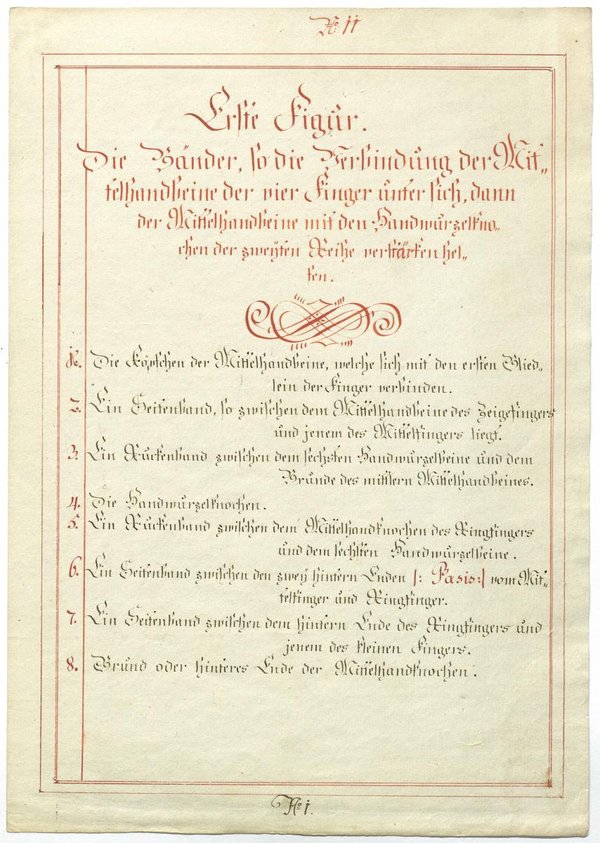 No. 11
Erste Figur.
Die Bänder, so die Verbindung der Mit=
telhandbeine der vier Finger unter sich, dann
der Mittelhandbeine mit den Handwurzelkno=
chen der zweyten Reihe verstärken hel=
fen.
1. Die Köpfchen der Mittelhandbeine, welche sich mit den ersten Glied=
lein der Finger verbinden.
2. Ein Seitenband, so zwischen dem Mittelhandbeine des Zeigefingers
und jenem des Mittelfingers liegt.
3. Ein Rückenband zwischen dem sechsten Handwurzelbeine und dem
Grunde des mittlern Mittelhandbeines.
4. Die Handwurzelknochen.
5. Ein Rückenband zwischen dem Mittelhandknochen des Ringfingers
und dem sechsten Handwurzelbeine.
6. Ein Seitenband zwischen den zwey hintern Enden |: Basis :| vom Mit=
telfinger und Ringfinger.
7. Ein Seitenband zwischen dem hintern Ende des Ringfingers und
jenem des kleinen Fingers.
8. Grund oder hinteres Ende der Mittelhandknochen.
No. 1.